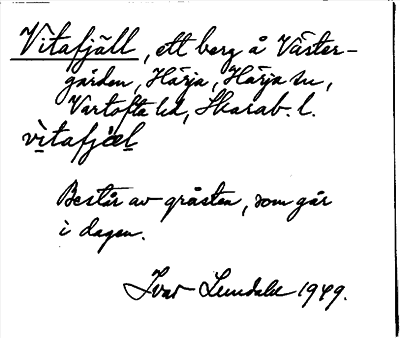 Vitafjäll, ett berg å Väster-
gården, Härja, Härja sn,
Vartofta hd, Skarab. l.
vìtafjæ̀l
Består av gråsten, som går
i dagen.
Ivar Lundahl 1949.